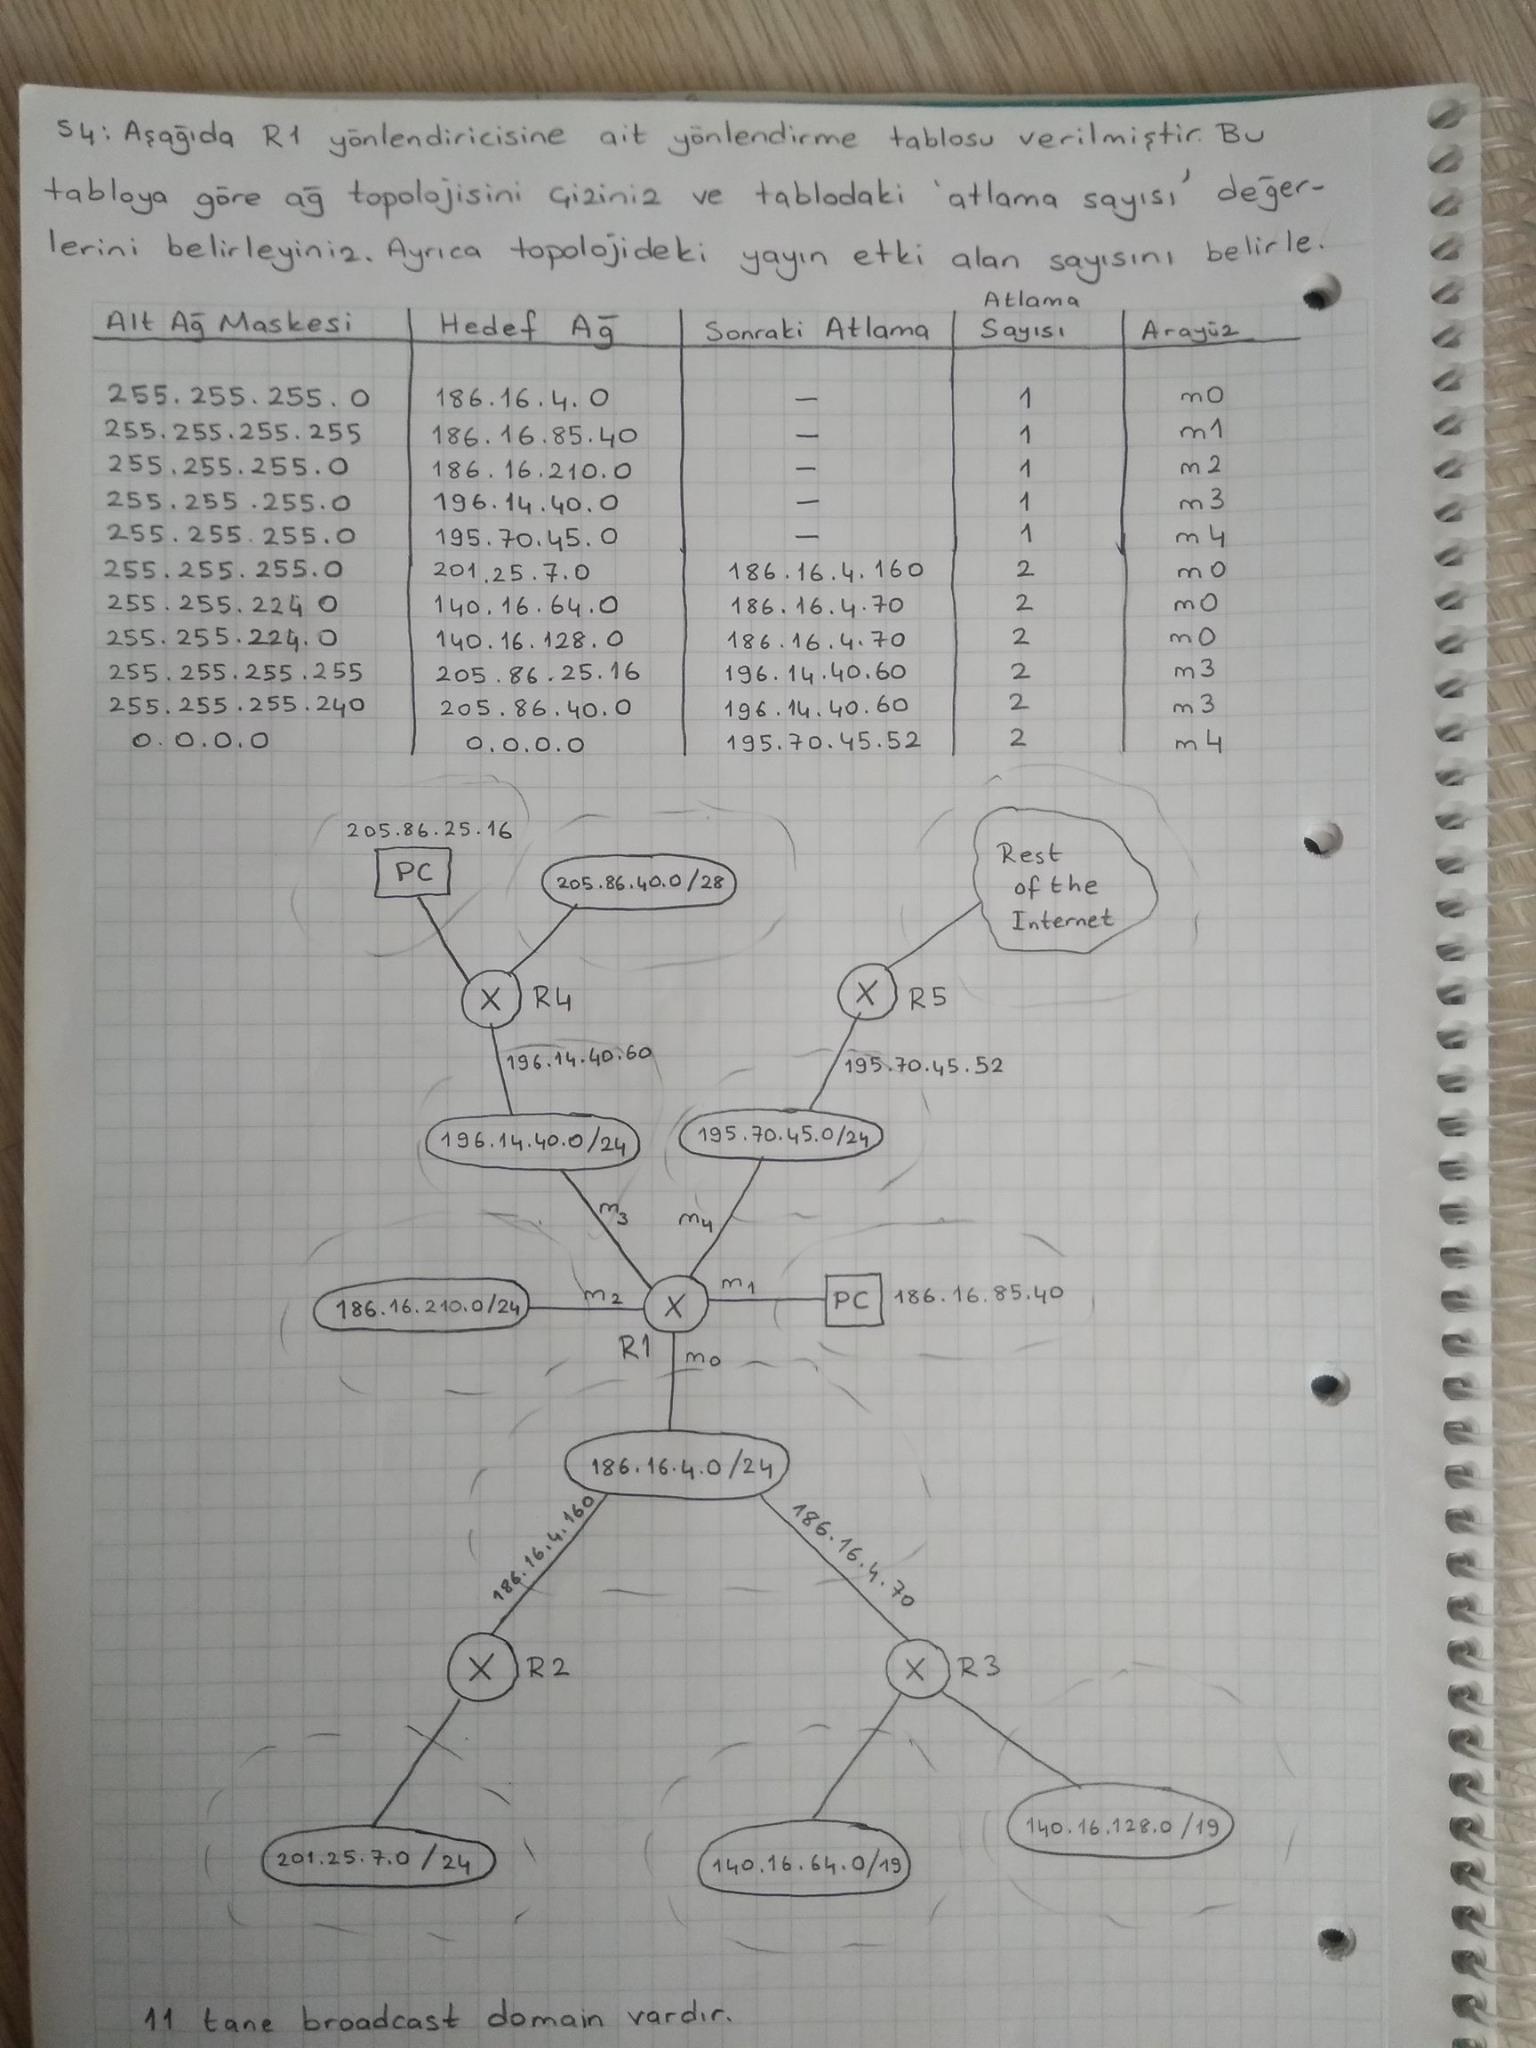 S4: Aşağıda R1 yönlendiricisine ait yönlendirme tablosu verilmiştir. Bu
tabloya göre ağ topolojisini çiziniz ve tablodaki 'atlama sayısı' değer-
lerini belirleyiniz. Ayrıca topolojideki yayın etki alan sayısını belirle.
Alt Ağ Maskesi Hedef Ağ Sonraki Atlama Atlama Sayısı Arayüz
255.255.255.0 186.16.4.0 — 1 m0
255.255.255.255 186.16.85.40 — 1 m1
255.255.255.0 186.16.210.0 — 1 m2
255.255.255.0 196.14.40.0 — 1 m3
255.255.255.0 195.70.45.0 — 1 m4
255.255.255.0 201.25.7.0 186.16.4.160 2 m0
255.255.224.0 140.16.64.0 186.16.4.70 2 m0
255.255.224.0 140.16.128.0 186.16.4.70 2 m0
255.255.255.255 205.86.25.16 196.14.40.60 2 m3
255.255.255.240 205.86.40.0 196.14.40.60 2 m3
0.0.0.0 0.0.0.0 195.70.45.52 2 m4
205.86.25.16
PC
205.86.40.0/28
Rest
of the
Internet
X R4
X R5
196.14.40.60
195.70.45.52
196.14.40.0/24
195.70.45.0/24
m3
m4
186.16.210.0/24
m2
X
m1
PC
186.16.85.40
R1
m0
186.16.4.0/24
186.16.4.160
186.16.4.70
X R2
X R3
201.25.7.0/24
140.16.64.0/19
140.16.128.0/19
11 tane broadcast domain vardır.